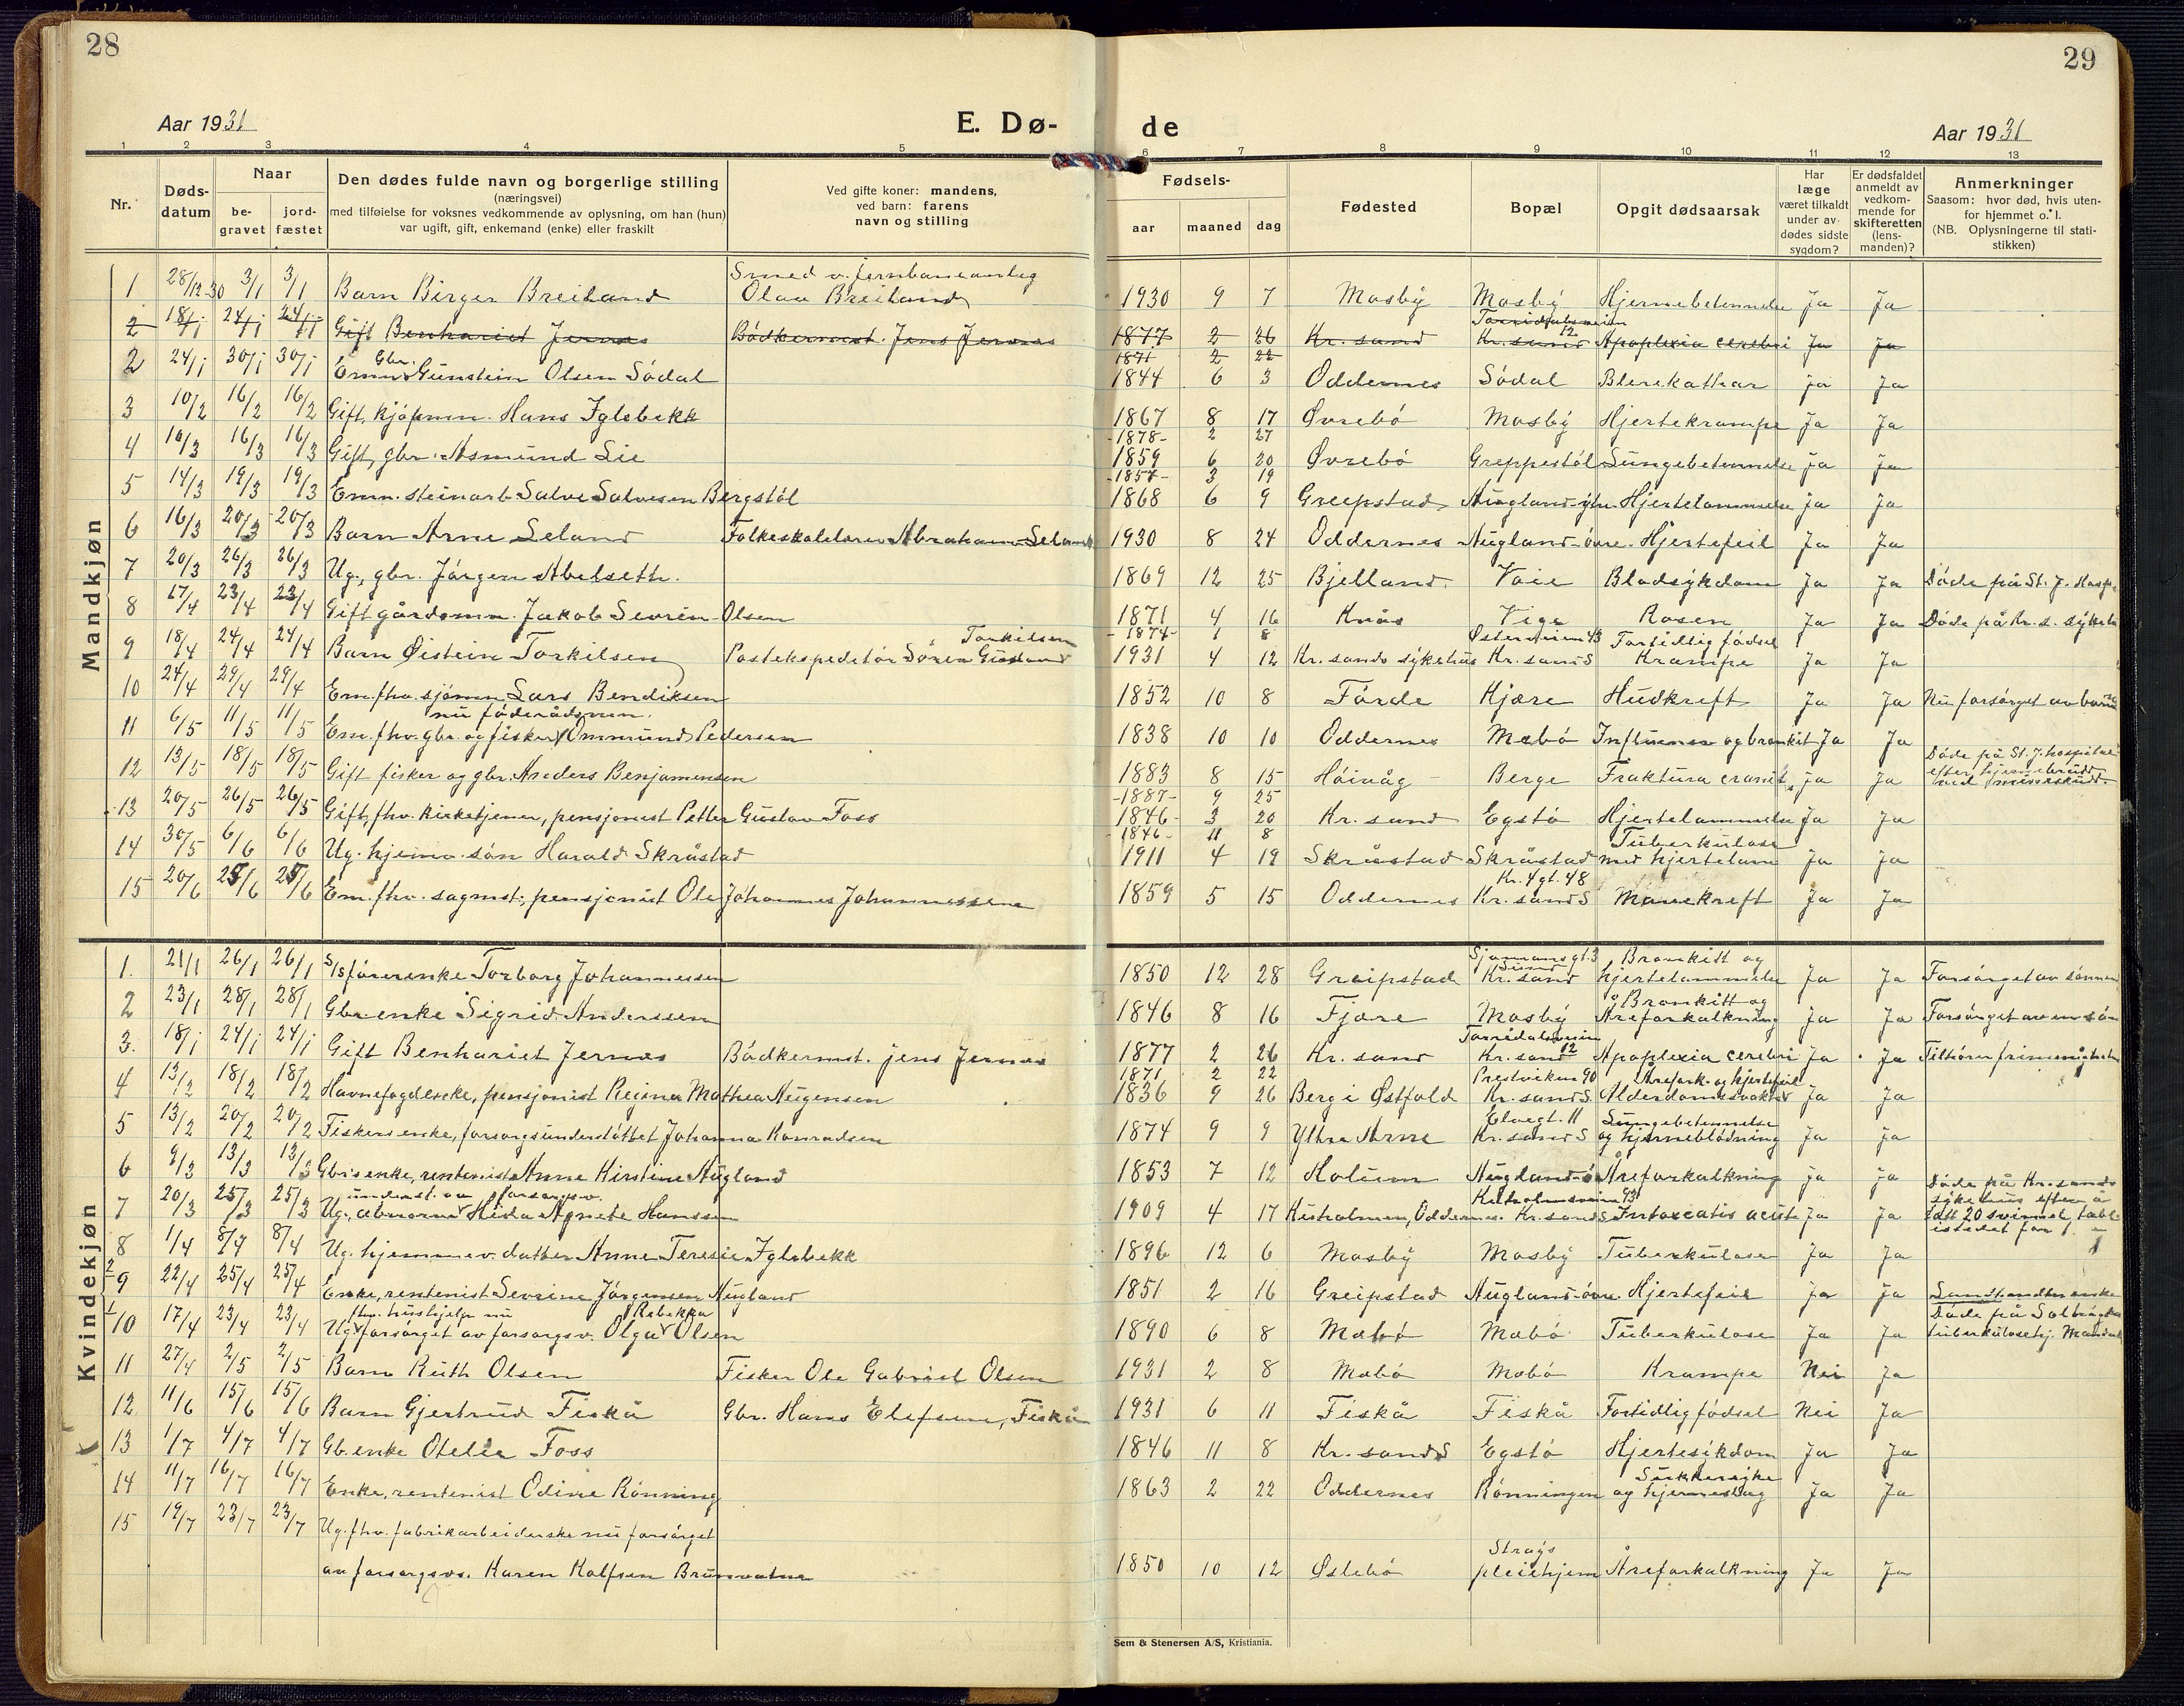 28
29
Aar 1931
E. Dø-
de
Aar 1931
1 2 3 4 5 6 7 8 9 10 11 12 13
Nr.
Døds-datum
Naar
be-gravet
jord-fæstet
Den dødes fulde navn og borgerlige stilling
(næringsvei)
med tilføielse for voksnes vedkommende av oplysning, om han (hun)
var ugift, gift, enkemand (enke) eller fraskilt
Ved gifte koner: mandens,
ved barn: farens
navn og stilling
Fødsels-
aar maaned dag
Fødested
Bopæl
Opgit dødsaarsak
Har læge været tilkaldt under av-dødes sidste sygdom?
Er dødsfaldet anmeldt av vedkom-mende for skifteretten (lens-manden)?
Anmerkninger
Saasom: hvor død, hvis uten-
for hjemmet o. l.
(NB. Oplysningerne til stati-
stikken)
Mandkjøn
1 28/12-30 3/1 3/1 Barn Birger Breiland Smed v. jernbaneanleg Olav Breiland 1930 9 7 Mosby Mosby Hjernebetennelse Ja Ja
2 18/1 24/1 24/1 Gift Benhariet Jernæs Bødkermst. Jens Jernæs 1877 2 26 Kr.sand Torridalsveien 12 Kr.sand Apoplexia cerebri Ja Ja
1871 2 22
2 24/1 30/1 30/1 Emn. Gbr. Gunstein Olsen Södal 1844 6 3 Oddernes Södal Blerekathar Ja Ja
3 10/2 16/2 16/2 Gift, kjøpmn. Hans Iglebekk 1867 8 17 Øvrebö Mosby Hjertekrampe Ja Ja
-1878- 2 27
4 10/3 16/3 16/3 Gift, gbr. Asmund Lie 1859 6 20 Øvrebö Greppestöl Lungebetennelse Ja Ja
-1857- 3 19
5 14/3 19/3 19/3 Emn. steinarb. Salve Salvesen Bergstöl 1868 6 9 Greipstad Augland Hjertelammelse Ja Ja
6 16/3 20/3 20/3 Barn Arne Seland Folkeskolelærer Abraham Seland 1930 8 24 Oddernes Augland-övre. Hjertefeil Ja Ja
7 20/3 26/3 26/3 Ug., gbr. Jörgen Abelseth. 1869 12 25 Bjelland. Voie Blodsykdom Ja Ja Döde på St. J. Hosp.
8 17/4 23/4 23/4 Gift gårdsmn. Jakob Severin Olsen 1871 4 16 Knås Vige Rosen Ja Ja Döde på Kr. s. sykeh.
-1874- 1 8
9 18/4 24/4 24/4 Barn Øistein Torkilsen Postekspeditör Sören Gustav Torkilsen 1931 4 12 Kr.sands sykehus Østerveien 43 Kr.sand S Fortidlig födsel Krampe Ja Ja
10 24/4 29/4 29/4 Em. fhv. sjömn. Lars Bendiksen 1852 10 8 Förde Kjære Hudkreft Ja Ja Nu forsörget av barna
11 6/5 11/5 11/5 Em. fhv. gbr. og fisker nu föderådsmn. Ommund Pedersen 1838 10 10 Oddernes Mebö Influensa og bronkit Ja Ja
12 13/5 18/5 18/5 Gift fisker og gbr. Anders Benjaminsen 1883 8 15 Höivåg Berge Fraktura cranii Ja Ja Döde på St. J. hospital efter hjernebrudd ved mineskudd.
-1887- 9 25
13 20/5 26/5 26/5 Gift, fhv. kirketjener, pensjonist Petter Gustav Foss 1846 3 20 Kr.sand Egstö Hjertelammelse Ja Ja
-1846- 11 8
14 30/5 6/6 6/6 Ug. hjemv. sön Harald Skråstad 1911 4 19 Skråstad Skråstad Tuberkulose med hjertelam. Ja Ja
15 20/6 25/6 25/6 Em. fhv. sagmst., pensjonist Ole Johannes Johannessen 1859 5 15 Oddernes Kr. 4 gt. 48 Kr.sand S Mavekreft Ja Ja
Kvindekjøn
1. 21/1 26/1 26/1 S/S förerenke Torborg Johannessen 1850 12 28 Greipstad Sjømannsgt. 3 Kr.sand Bronkitt og hjertelammelse Ja Ja Forsörget av sönnen
2 23/1 28/1 28/1 Gbr.enke Sigrid Anderssen 1846 8 16 Fjære Mosby Bronkitt og Åreforkalkning Ja Ja Forsörget av en sön
3. 18/1 24/1 24/1 Gift Benhariet Jernæs Bödkermst. Jens Jernæs 1877 2 26 Kr.sand Torridalsveien 12 Kr.sand Apoplexia cerebri Ja Ja Tilhörer frimenigheten
1871 2 22
4 13/2 18/2 18/2 Havnefogdenke, pensjonist Regine Mathea Augensen 1836 9 26 Berg i Østfold Prestviken 90 Kr.sand S. Årefork. og hjertefeil Alderdomssvakhet Ja Ja
5 13/2 20/2 20/2 Fiskers enke, forsorgsunderstöttet Johanna Konradsen 1874 9 9 Ytre Arne Elvegt. 11 Kr.sand S Lungebetennelse og hjerneblödning Ja Ja
6 9/3 13/3 13/3 Gbrs enke, rentenist Anne Kirstine Augland 1853 7 12 Holum Augland-ö. Åreforkalkning Ja Ja
7 20/3 25/3 25/3 Ug., abnorm underst. av forsorgsv. Hilda Agnete Hanssen 1909 4 17 Kusholmen, Oddernes. Kr.sand S Intoxcatio acute Ja Ja Döde på Kr.sands sykehus efter å tatt 20 svimel. tabl. istedet for 1.
8 1/4 8/4 8/4 Ug. hjemmev. datter Anne Teresie Iglebekk 1896 12 6 Mosby Mosby Tuberkulose Ja Ja
9 22/4 25/4 25/4 Enke, rentenist Severine Jörgensen Augland 1851 2 16 Greipstad Augland-övre. Hjertefeil Ja Ja
10 17/4 23/4 23/4 Ug. fhv. hushjelp nu forsörget av forsorgsv. Olga Rebekka Olsen 1890 6 8 Mebö Mebö Tuberkulose Ja Ja Döde på Solbögda tuberkulosehj. Mandal
11 27/4 2/5 2/5 Barn Ruth Olsen Fisker Ole Gabriel Olsen 1931 2 8 Mebö Mebö Krampe Nei Ja
12 11/6 15/6 15/6 Barn Gjertrud Fiskå Gbr. Hans Elefsen, Fiskå 1931 6 11 Fiskå Fiskå Fortidlig födsel Nei Ja
13 1/7 4/7 4/7 Gb.enke Otelie Foss 1846 11 8 Kr.sand S Egstö Hjertesykdom Ja Ja
14 11/7 16/7 16/7 Enke, rentenist Odine Rönning 1863 2 22 Oddernes Rönningen Sukkersyke og hjerneslag Ja Ja
15 19/7 23/7 23/7 Ug. fhv. fabrikarbeiderske nu forsörget
av forsorgsvs. Karen Rolfsen Brunvatne 1850 10 12 Øslebö Strays pleiehjem Åreforkalkning Ja Ja
Sem & Stenersen A/S, Kristiania.